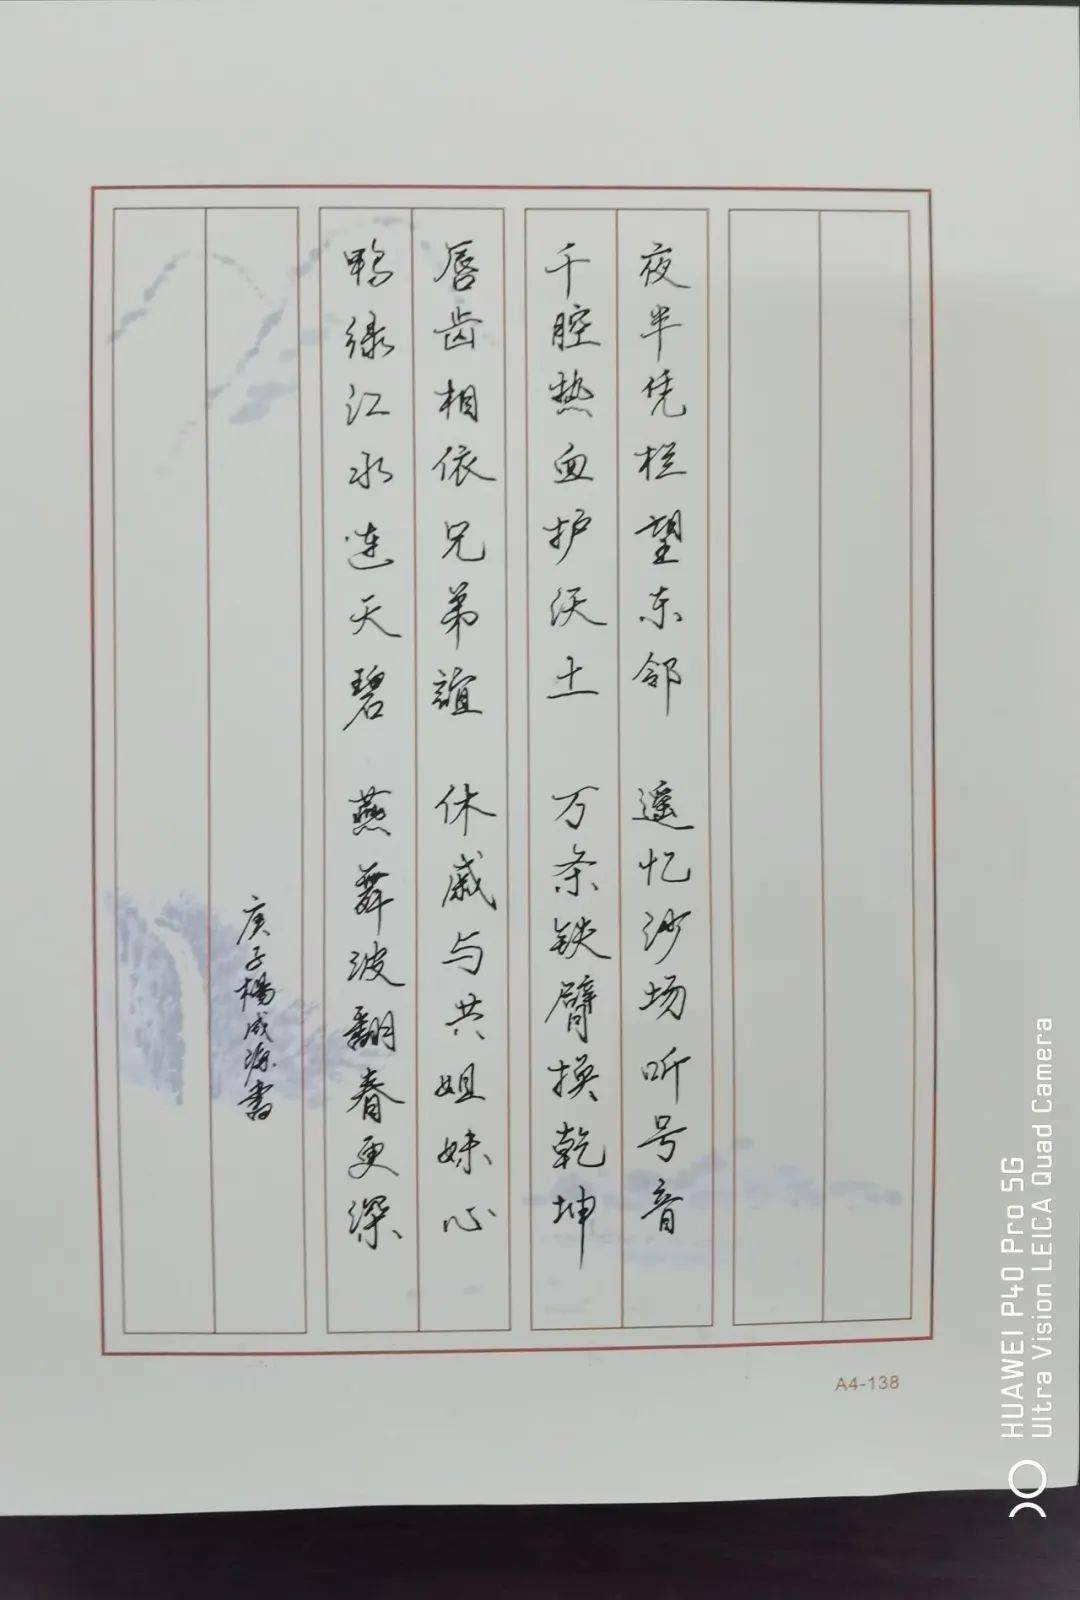 夜半凭栏望东邻 遥忆沙场听号音
千腔热血护沃土 万条铁臂换乾坤
唇齿相依兄弟誼 休戚与共姐妹心
鸭绿江水连天碧 燕舞波翻春更深
庚子楊成源書
A4-138
HUAWEI P40 Pro 5G
Ultra Vision LEICA Quad Camera